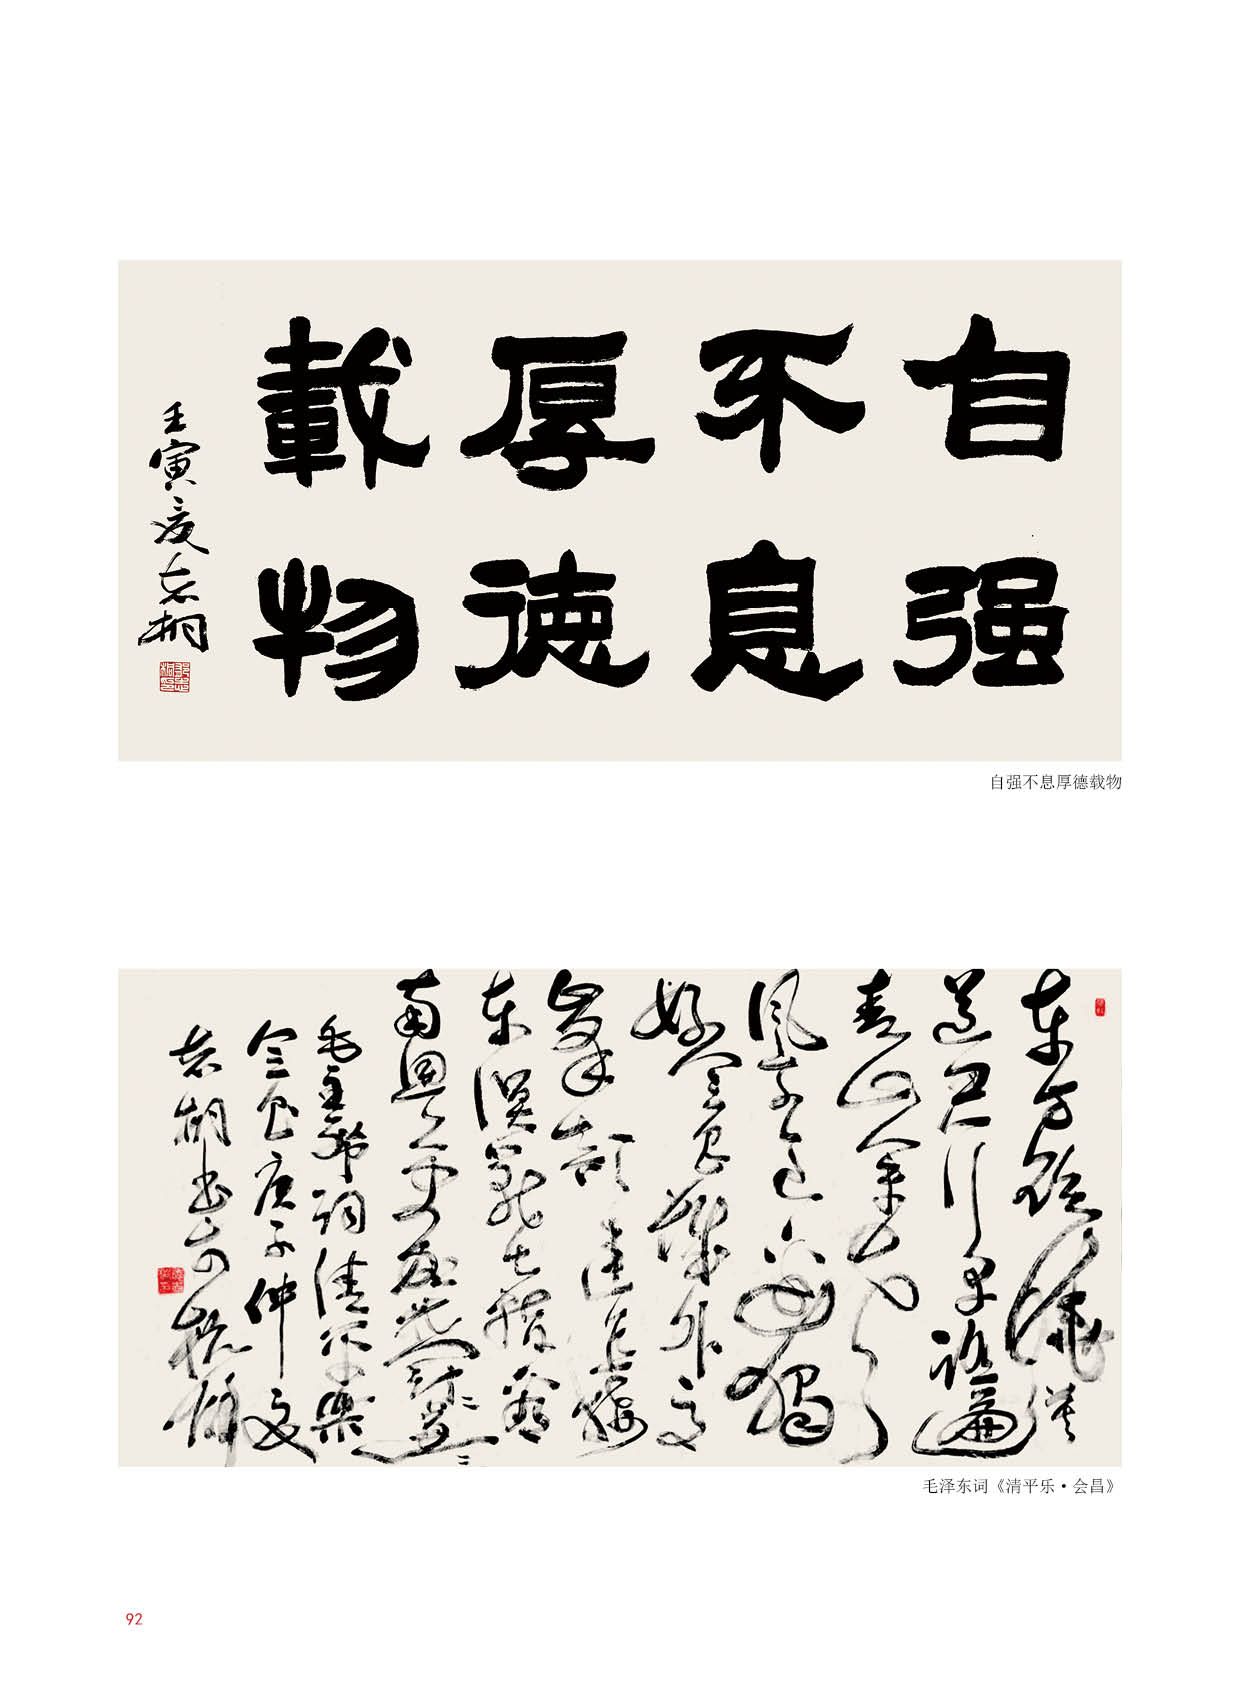 自强
不息
厚德
載物
壬寅夏志桐
自强不息厚德载物
东方欲晓莫
道君行早踏遍
青山人未老
风景这边独
好会昌城外高
峰颠连直接
东溟战士指看
南粤更加郁郁葱葱
毛主席词清平乐
会昌庚子仲夏
志桐书于杭
毛泽东词《清平乐·会昌》
92